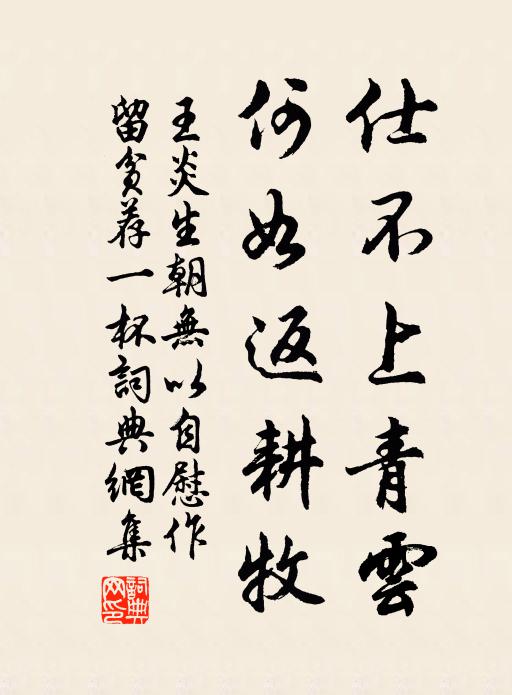 仕不上青雲
何如返耕牧
王炎生朝無以自慰作
留貧荐一杯詞典網集
詞典網印